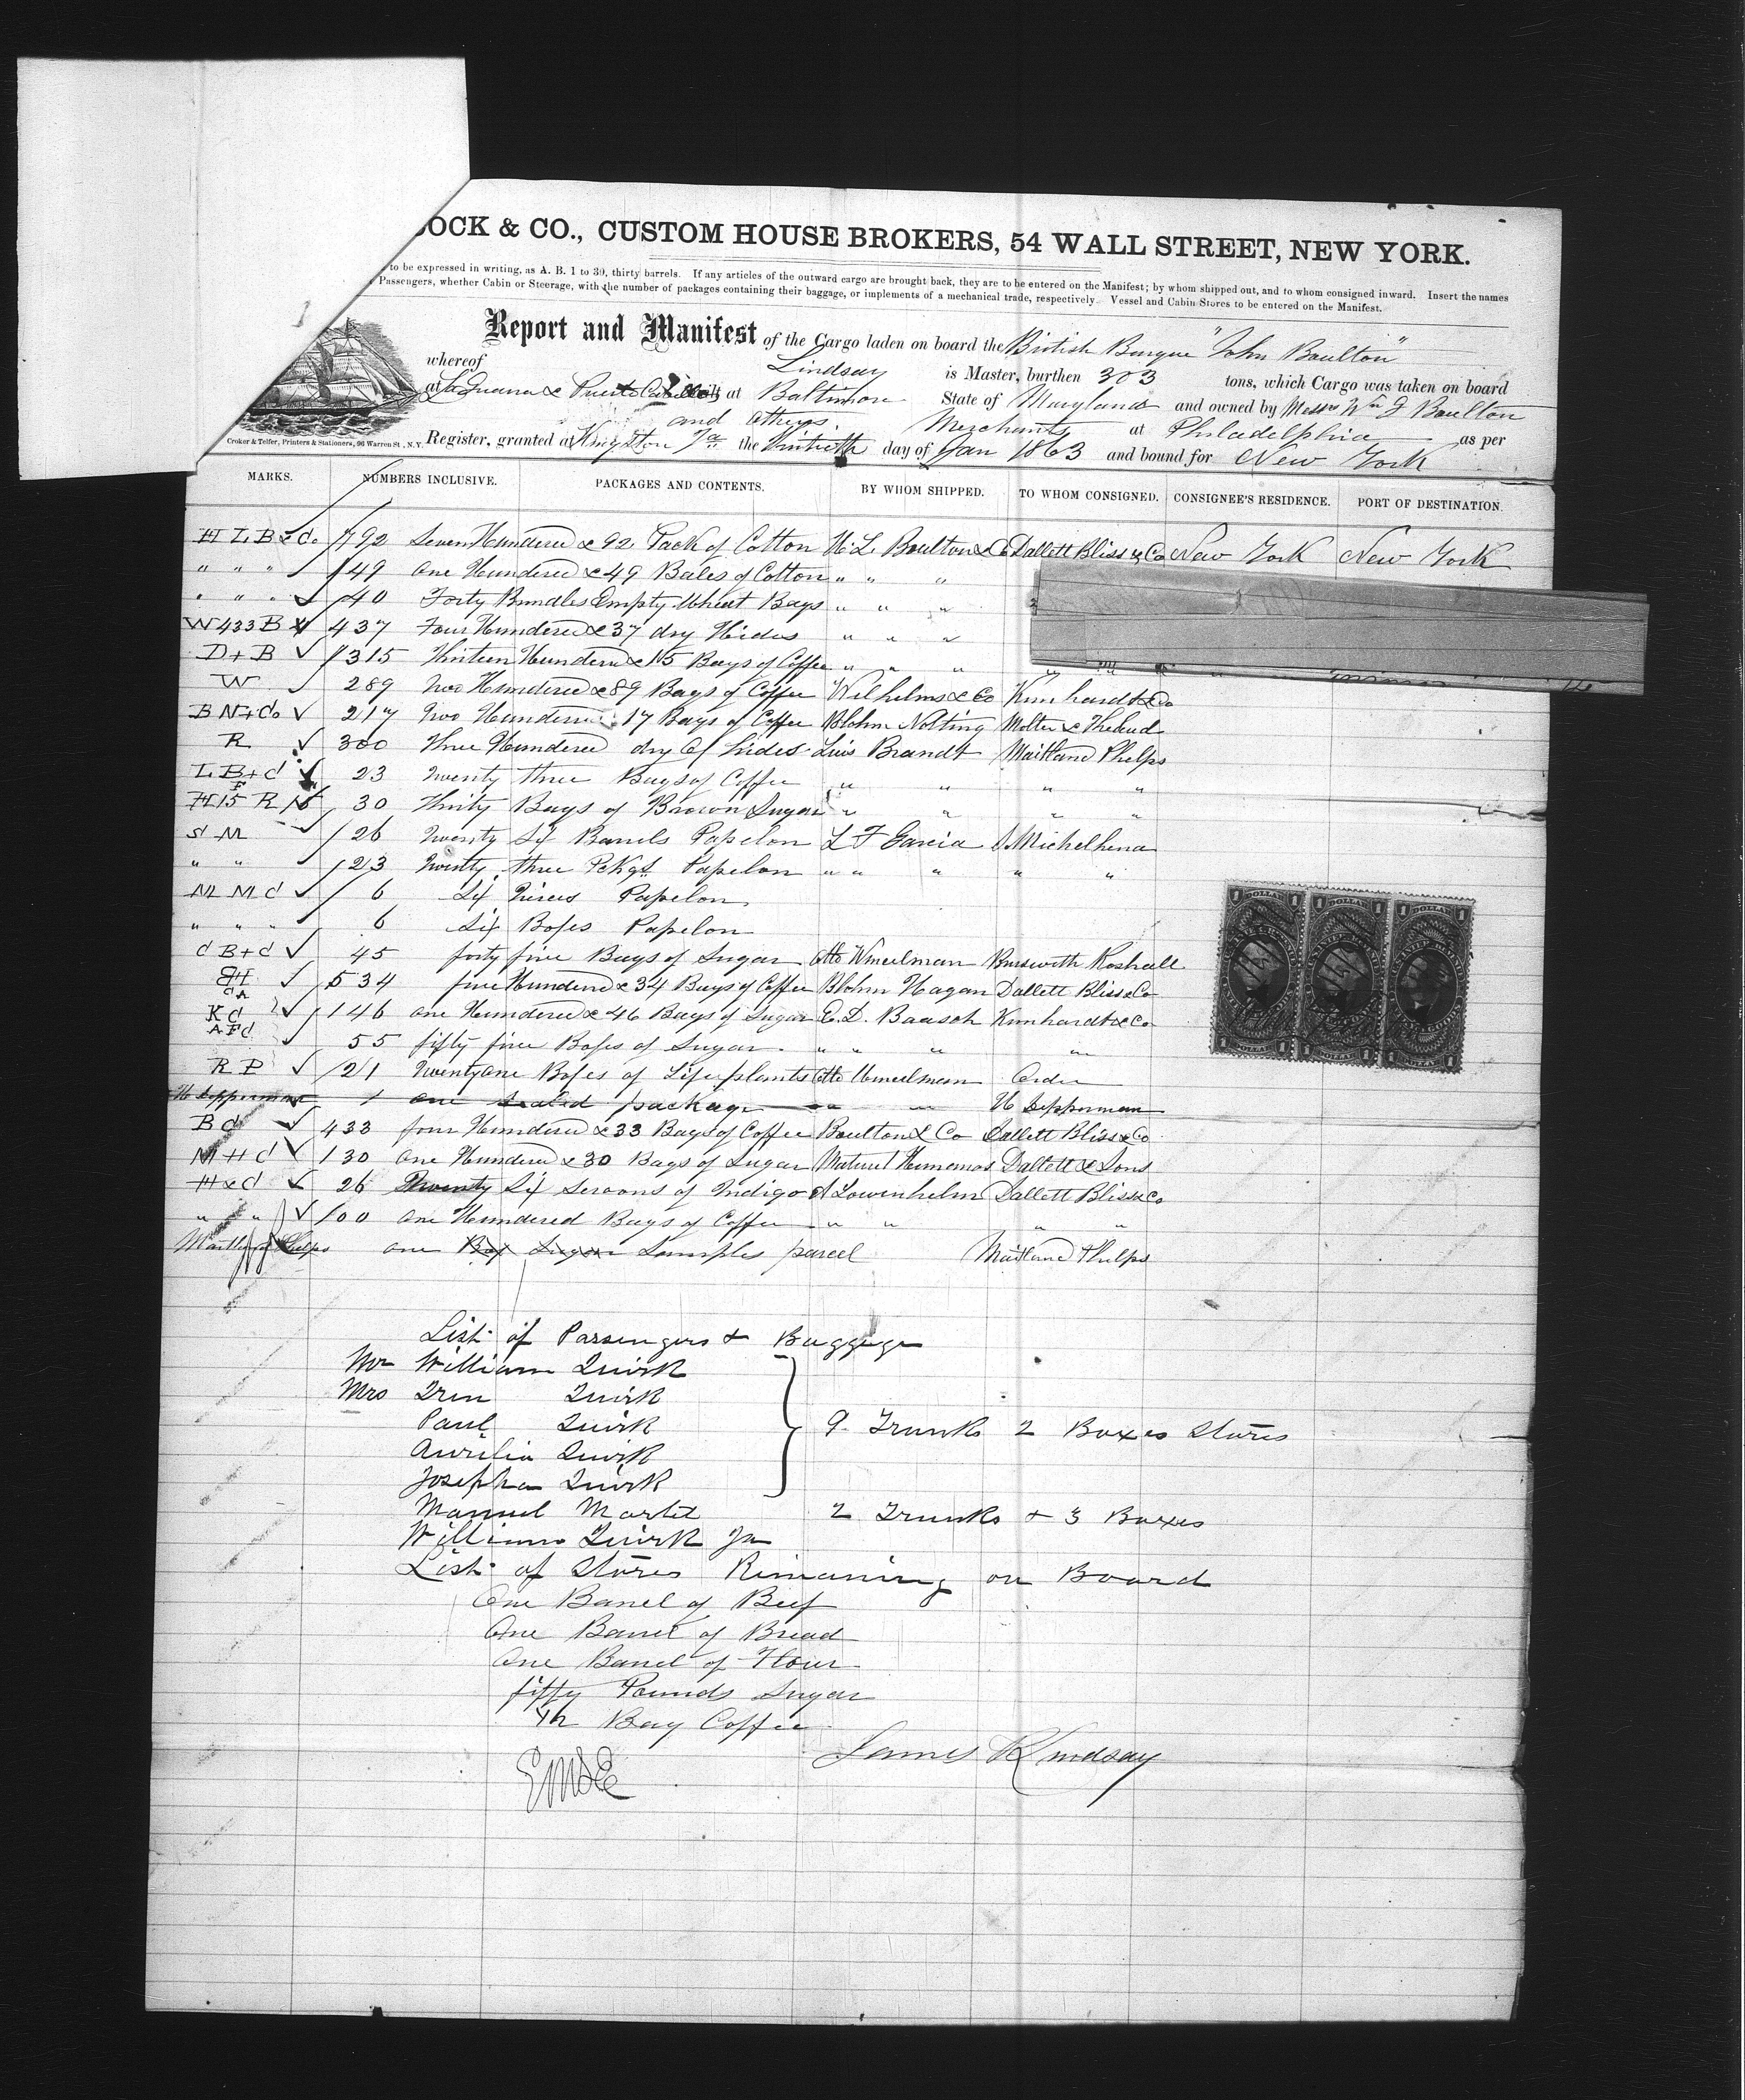 OCK & CO., CUSTOM HOUSE BROKERS, 54 WALL STREET, NEW YORK.
to be expressed in writing, as A. B. 1 to 30, thirty barrels. If any articles of the outward cargo are brought back, they are to be entered on the Manifest; by whom shipped out, and to whom consigned inward. Insert the names
Passengers, whether Cabin or Steerage, with the number of packages containing their baggage, or implements of a mechanical trade, respectively. Vessel and Cabin Stores to be entered on the Manifest.
Report and Manifest of the Cargo laden on board the British Barque "John Boulton"
whereof Lindsay is Master, burthen 303 tons, which Cargo was taken on board
at La Guana & Puerto Cabello built at Baltimore State of Maryland and owned by Messrs Wm J Boulton
and others. Merchants at Philadelphia as per
Register, granted at Kingston Ja the day of Jan 1863 and bound for New York
Croker & Telfer, Printers & Stationers, 96 Warren St., N.Y.
MARKS. NUMBERS INCLUSIVE. PACKAGES AND CONTENTS. BY WHOM SHIPPED. TO WHOM CONSIGNED. CONSIGNEE'S RESIDENCE. PORT OF DESTINATION.
H L B & Co 792 Seven Hundered & 92 Pack of Cotton H. L. Boulton & Co Dallett Bliss & Co New York New York
" " " 149 One Hundered & 49 Bales of Cotton " " "
" " " 40 Forty Bundles Empty Wheat Bags " " "
W 433 B 437 Four Hundered & 37 dry Hides " " "
D + B 1315 Thirteen Hundern & 15 Bags of Coffee " " "
W 289 Two Hundered & 89 Bags of Coffee Wilhelms & Co Kunhardt & Co
B N + Co 217 Two Hundered 17 Bags of Coffee Blohm Nolting Molter &
R 300 Three Hundered dry hides Luis Brandt Maitland Phelps
L B + C 23 Twenty three Bags of Coffee " " " "
H 15 R 30 Thirty Bags of Brown Sugar " " " "
S M 26 Twenty Six Barrels Papelon L F Garcia S Michelhena
" " 23 Twenty three Pckgs Papelon " " " " "
M M C 6 Six Papelon
" " " 6 Six Boxes Papelon
C B + C 45 forty five Bags of Sugar Otto
534 five Hundered & 34 Bags of Coffee Blohm Hagan Dallett Bliss & Co
K C 146 One Hundered & 46 Bags of Sugar E. D. Baasch Kunhardt & Co
A F C 55 fifty five Boxes of Sugar " " " "
R P 21 Twenty One Boxes of Otto Order
1 one sealed package " " H Lepperman
B C 433 four Hundered & 33 Bags of Coffee Boulton & Co Dallett Bliss & Co
M H C 130 One Hundered & 30 Bags of Sugar Dallett & Sons
H & C 26 Twenty Six Seroons of Indigo Lowenhelm Dallett Bliss & Co
" " 100 One Hundered Bags of Coffee " " " "
Maitland Phelps one Box Sugar Samples parcel Maitland Phelps
List of Passengers & Baggage
Mr William Quirk
Mrs Quirk
Paul Quirk 9 Trunks 2 Boxes Stores
Aurelia Quirk
Josepha Quirk
Manuel Martel 2 Trunks + 3 Boxes
William Quirk Jn
List of Stores Rimaning on Board
One Barrel of Beef
One Barrel of Bread
One Barrel of Flour
fifty Pounds Sugar
1/2 Bag Coffee
James R Lindsay